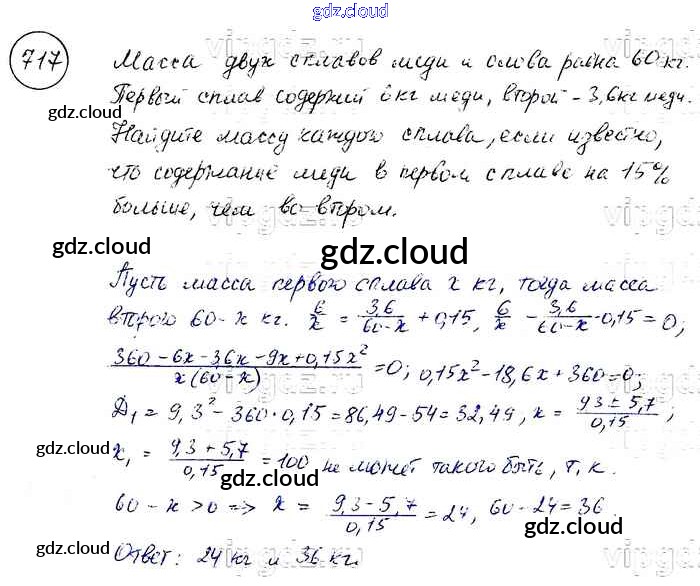 gdz.cloud
717
Масса двух сплавов меди и олова равна 60 кг.
gdz.cloud
Первый сплав содержит 6 кг меди, второй - 3,6 кг меди.
gdz.cloud
Найдите массу каждого сплава, если известно,
что содержание меди в первом сплаве на 15%
больше, чем во втором.
gdz.cloud
gdz.cloud
Пусть масса первого сплава x кг, тогда масса
второго 60-x кг. 6/x = 3,6/(60-x) + 0,15, 6/x - 3,6/(60-x) - 0,15 = 0;
(360-6x-3,6x-9x+0,15x²)/(x(60-x)) = 0; 0,15x²-18,6x+360=0;
gdz.cloud
Д₁ = 9,3² - 360·0,15 = 86,49-54 = 32,49, x = (9,3 ± 5,7)/0,15;
gdz.cloud
x₁ = (9,3+5,7)/0,15 = 100 не может такого быть, т.к.
60-x>0 => x = (9,3-5,7)/0,15 = 24, 60-24=36.
gdz.cloud
gdz.cloud
Ответ: 24 кг и 36 кг.
gdz.cloud